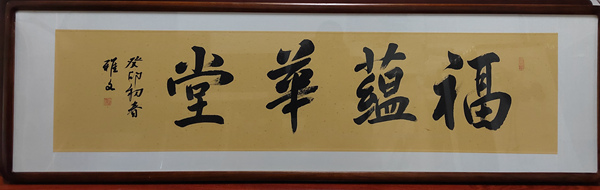 福蕴華堂
癸卯初春
雅文